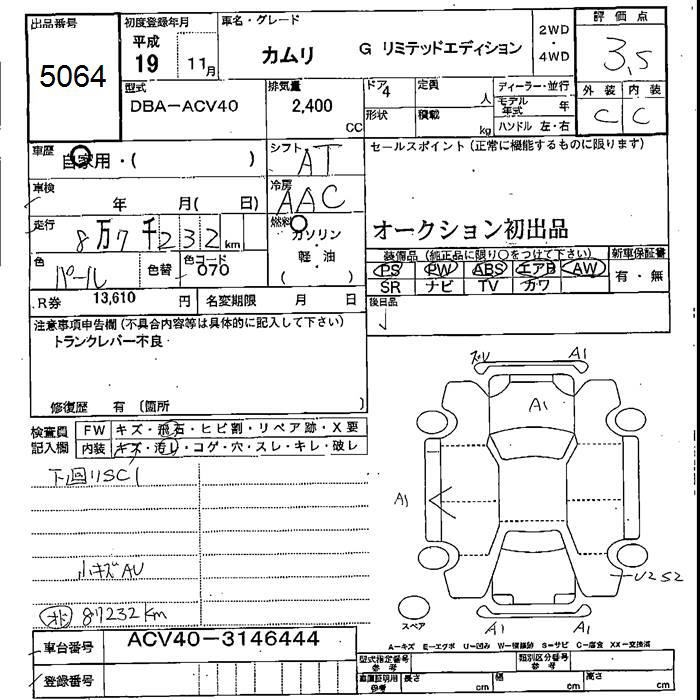 出品番号
5064
初度登録年月
平成
19 11月
車名・グレード
カムリ G リミテッドエディション
2WD
・
4WD
評価点
3,5
外装 内装
C C
型式
DBA-ACV40
排気量
2,400
CC
ドア
4
定員
人
形状
積載
kg
ディーラー・並行
モデル
年式 年
ハンドル 左・右
車歴
自家用・( )
シフト
AT
車検
年 月( 日)
冷房
AAC
走行
8万7千232km
燃料
ガソリン
軽・油
( )
色
パール
色替
色コード
070
R券 13,610 円
名変期限 月 日
セールスポイント(正常に機能するものに限ります)
オークション初出品
装備品(純正品に限り○をつけて下さい)
PS PW ABS エアB AW
SR ナビ TV カワ
新車保証書
有・無
後日品
注意事項申告欄(不具合内容等は具体的に記入して下さい)
トランクレバー不良
修復歴 有(箇所 )
検査員
記入欄
FW キズ・飛石・ヒビ割・リペア跡・X要
内装 キズ・汚レ・コゲ・穴・スレ・キレ・破レ
下回りSC1
小キズAU
87232Km
ズリ A1
A1
A1
U2S2
スペア
A1 A1
A-キズ E-エクボ U-凹み W-補修跡 S-サビ C-腐食 XX-交換済
車台番号 ACV40-3146444
登録番号
型式指定番号
参考
類別区分番号
参考
車庫証明用
参考
長さ cm
幅 cm
高さ cm